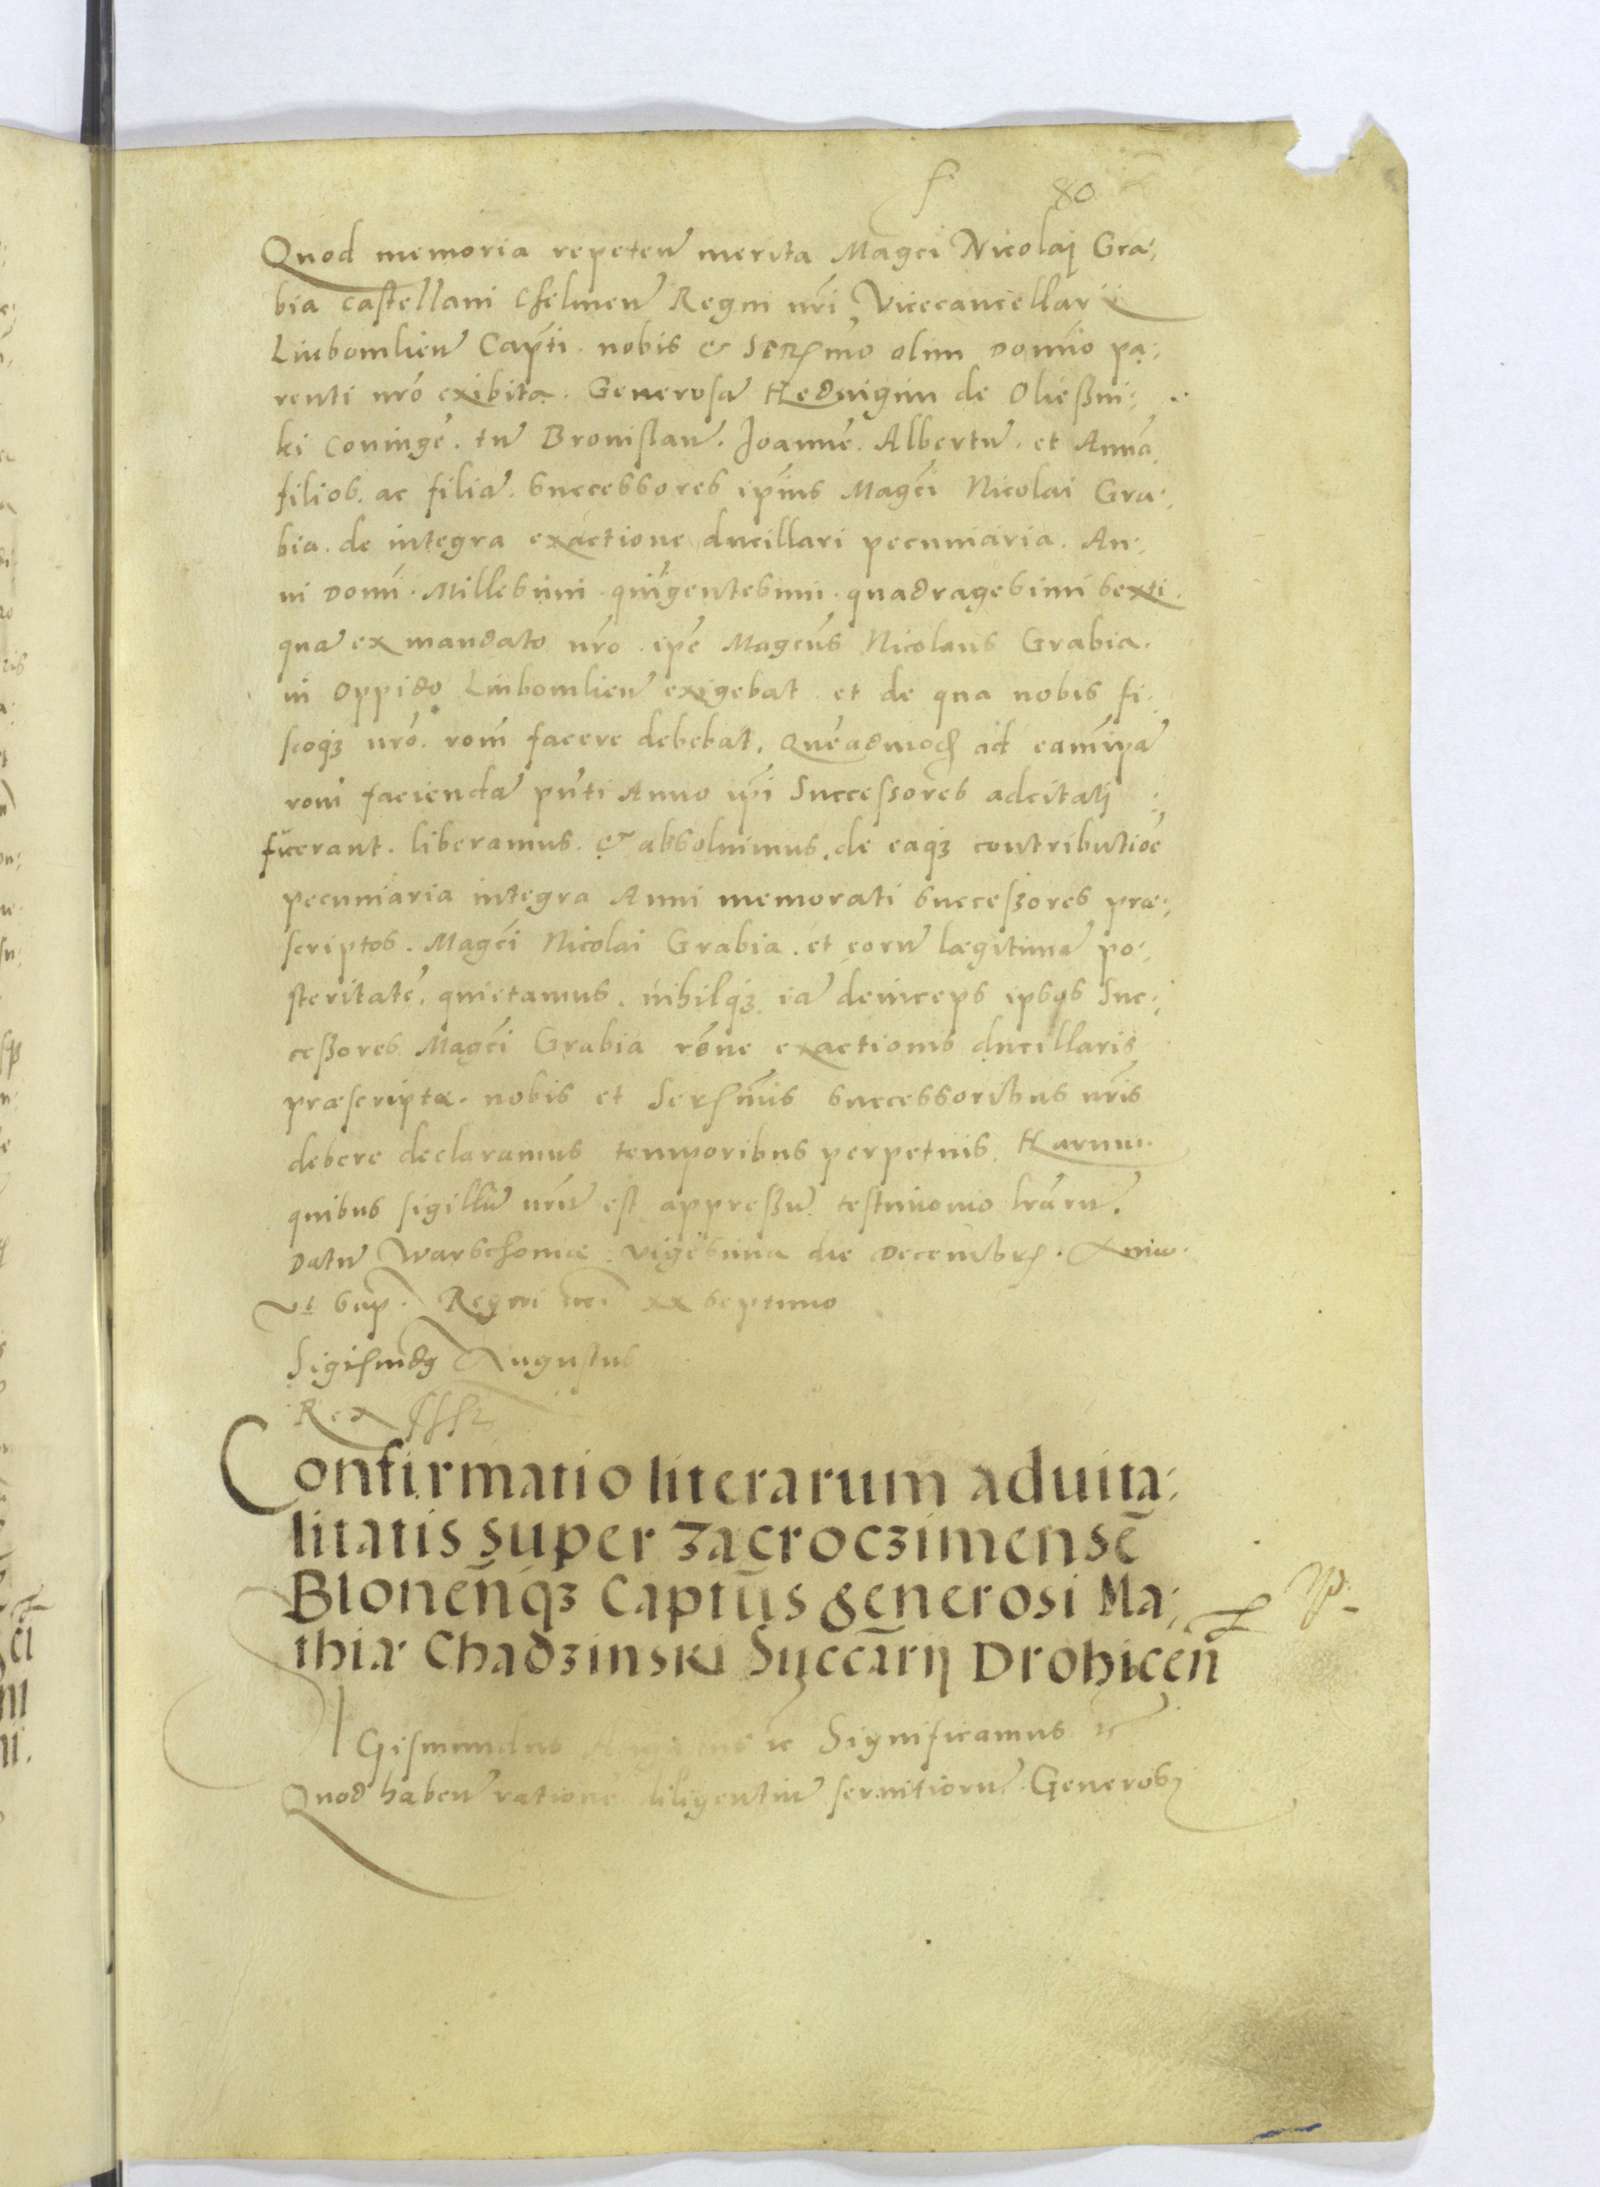 80
Quod memoria repeteñ merita Magci Nicolaij Gra:
bia castellani Chelmeñ Regni nr̃i Vicecancellarii
Liubomlieñ Capti. nobis & Serᷤmo olim Domĩo pa:
renti nrõ exibita. Generosã Hedvigim de Olieſzni:
ki Coniugẽ. tũ Bronislaũ. Joannẽ. Albertũ. et Annã
filios. ac filiã. successores ipiũs Magci Nicolai Gra:
bia. de integra exactione ducillari pecuniaria. An:
ni Domi. Millesimi. quĩgentesimi. quadragesimi sexti.
quã ex mandato nrõ. ipẽ Magcus Nicolaus Grabia.
in Oppido Liubomlieñ exigebat. et de qua nobis fi:
scoqȝ nrõ. rom̃ facere debebat. Quẽadmodꝫ ad eam̃ipã
rom̃ faciendã pñti Anno ipĩ Successores adcitatj
fuerant. liberamus. & absoluimus. de eaqȝ contributiõe
pecuniaria integra Anni memorati successores præ:
scriptos. Magci Nicolai Grabia. et eorũ lægitimã po:
steritatẽ. quietamus. nihilqȝ iã deinceps ipsos Suc:
ceßores Magci Grabia rõne exactionis ducillaris
præscriptæ. nobis et Serᷤmis successoribus nr̃is
debere declaramus temporibus perpetuis. Harum
quibus sigillũ nrũ est appreßũ testimonio lrãrũ.
Datũ Warschoniæ vigesima die Decembrꝫ. Anno
vt sup. Regni nr̃i xx septimo
Sigismũdꝫ Augustus
Rex
Confirmatio literarum aduita:
litatis super Zacroczimensẽ
Blonen̄qȝ Captũs generosi Ma:
thiæ Chadzinski Succãrij Drohicen̄
Gismundus Augustus ꝛc Significamus ꝛc
Quod habeñ rationẽ diligentiũ seruitiorũ Generosj